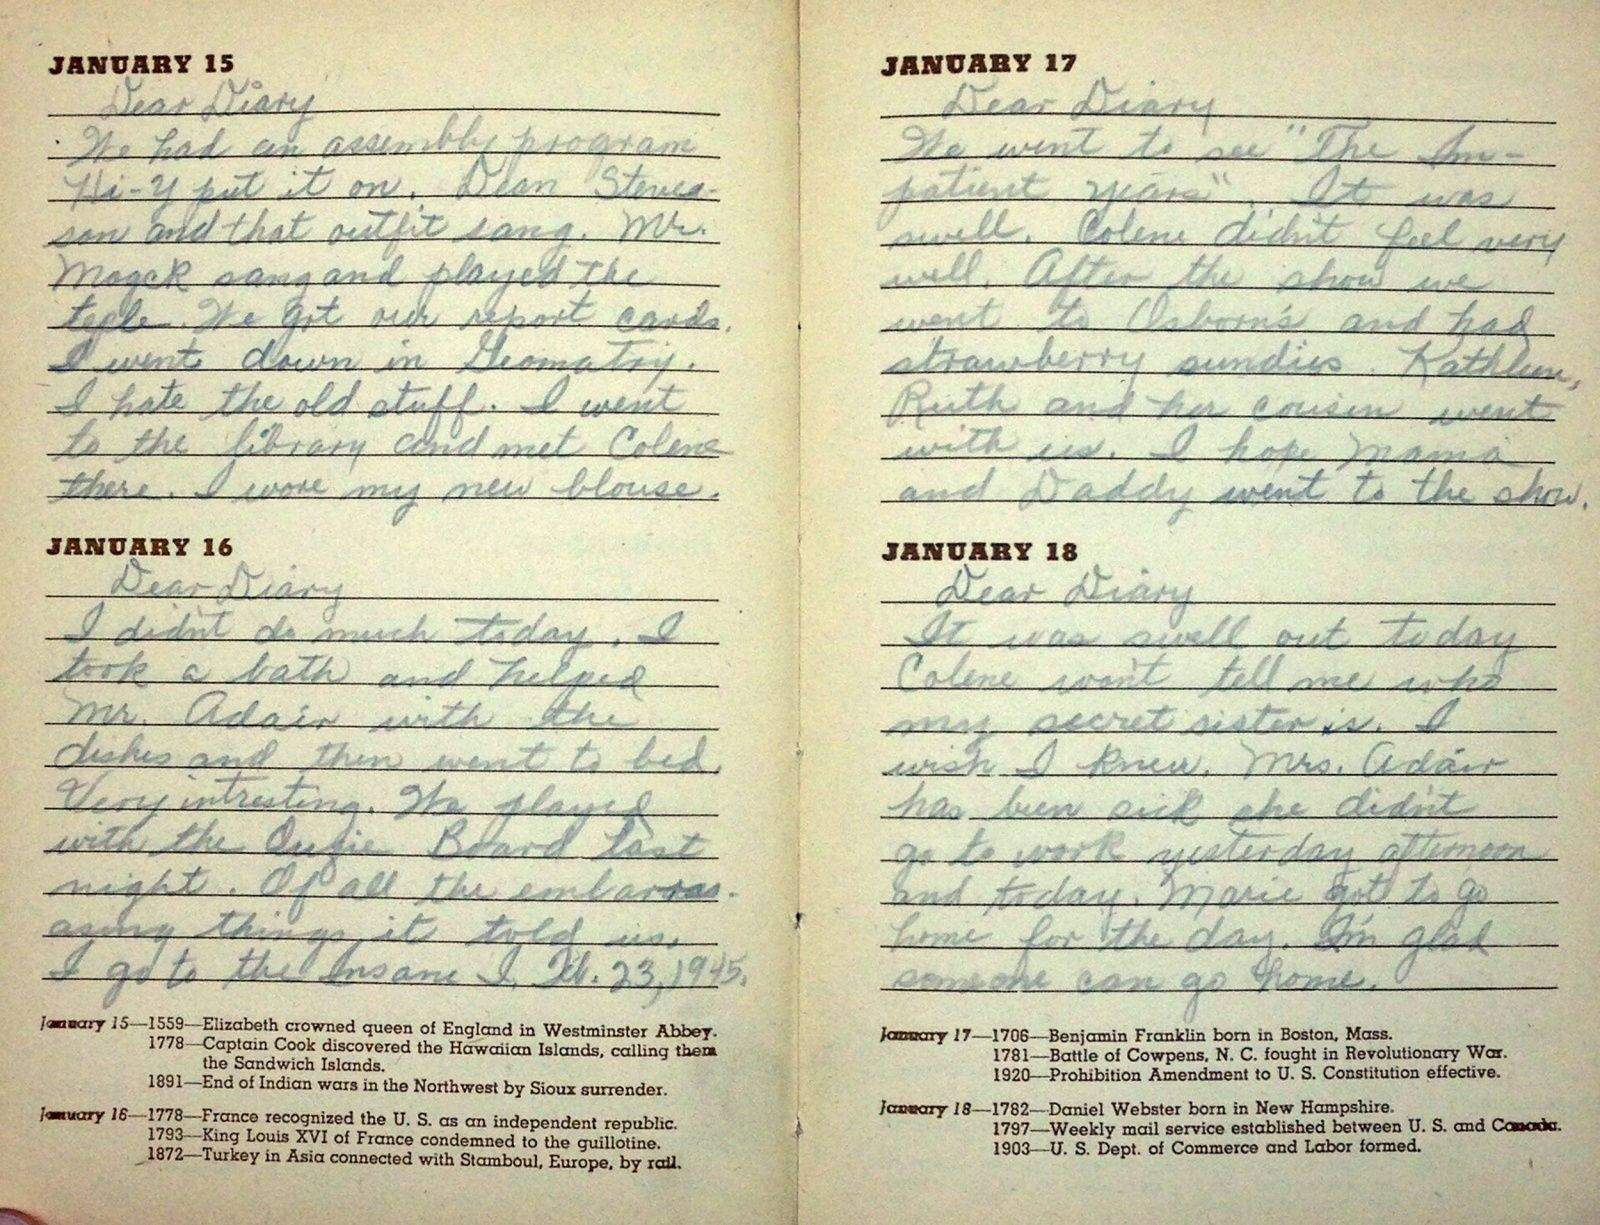 JANUARY 15
Dear Diary
We had an assembly program
Hi-Y put it on. Dean Steven-
son and that outfit sang. Mr.
sang and played the
We got our report cards.
I went down in Geomatry.
I hate the old stuff. I went
to the library and met Colene
there. I wore my new blouse.
JANUARY 16
Dear Diary
I didn't do much today. I
took a bath and helped
Mr. Adair with the
dishes and then went to bed.
Very intresting. We played
with the Board last
night. Of all the embarras-
asing things it told us.
I go to the Insane I. Feb. 23, 1945.
January 15—1559—Elizabeth crowned queen of England in Westminster Abbey.
1778—Captain Cook discovered the Hawaiian Islands, calling them
the Sandwich Islands.
1891—End of Indian wars in the Northwest by Sioux surrender.
January 16—1778—France recognized the U. S. as an independent republic.
1793—King Louis XVI of France condemned to the guillotine.
1872—Turkey in Asia connected with Stamboul, Europe, by rail.
JANUARY 17
Dear Diary
We went to see "The Im-
patient years". It was
swell. Colene didn't feel very
well. After the show we
went to Osborn's and had
strawberry sundies. Kathleen,
Ruth and her cousin went
with us. I hope Mama
and Daddy went to the show.
JANUARY 18
Dear Diary
It was swell out today
Colene won't tell me who
my secret sister is. I
wish I knew. Mrs. Adair
has been sick she didn't
go to work yesterday afternoon
and today. Marie got to go
home for the day. I'm glad
someone can go home.
January 17—1706—Benjamin Franklin born in Boston, Mass.
1781—Battle of Cowpens, N. C. fought in Revolutionary War.
1920—Prohibition Amendment to U. S. Constitution effective.
January 18—1782—Daniel Webster born in New Hampshire.
1797—Weekly mail service established between U. S. and Canada.
1903—U. S. Dept. of Commerce and Labor formed.